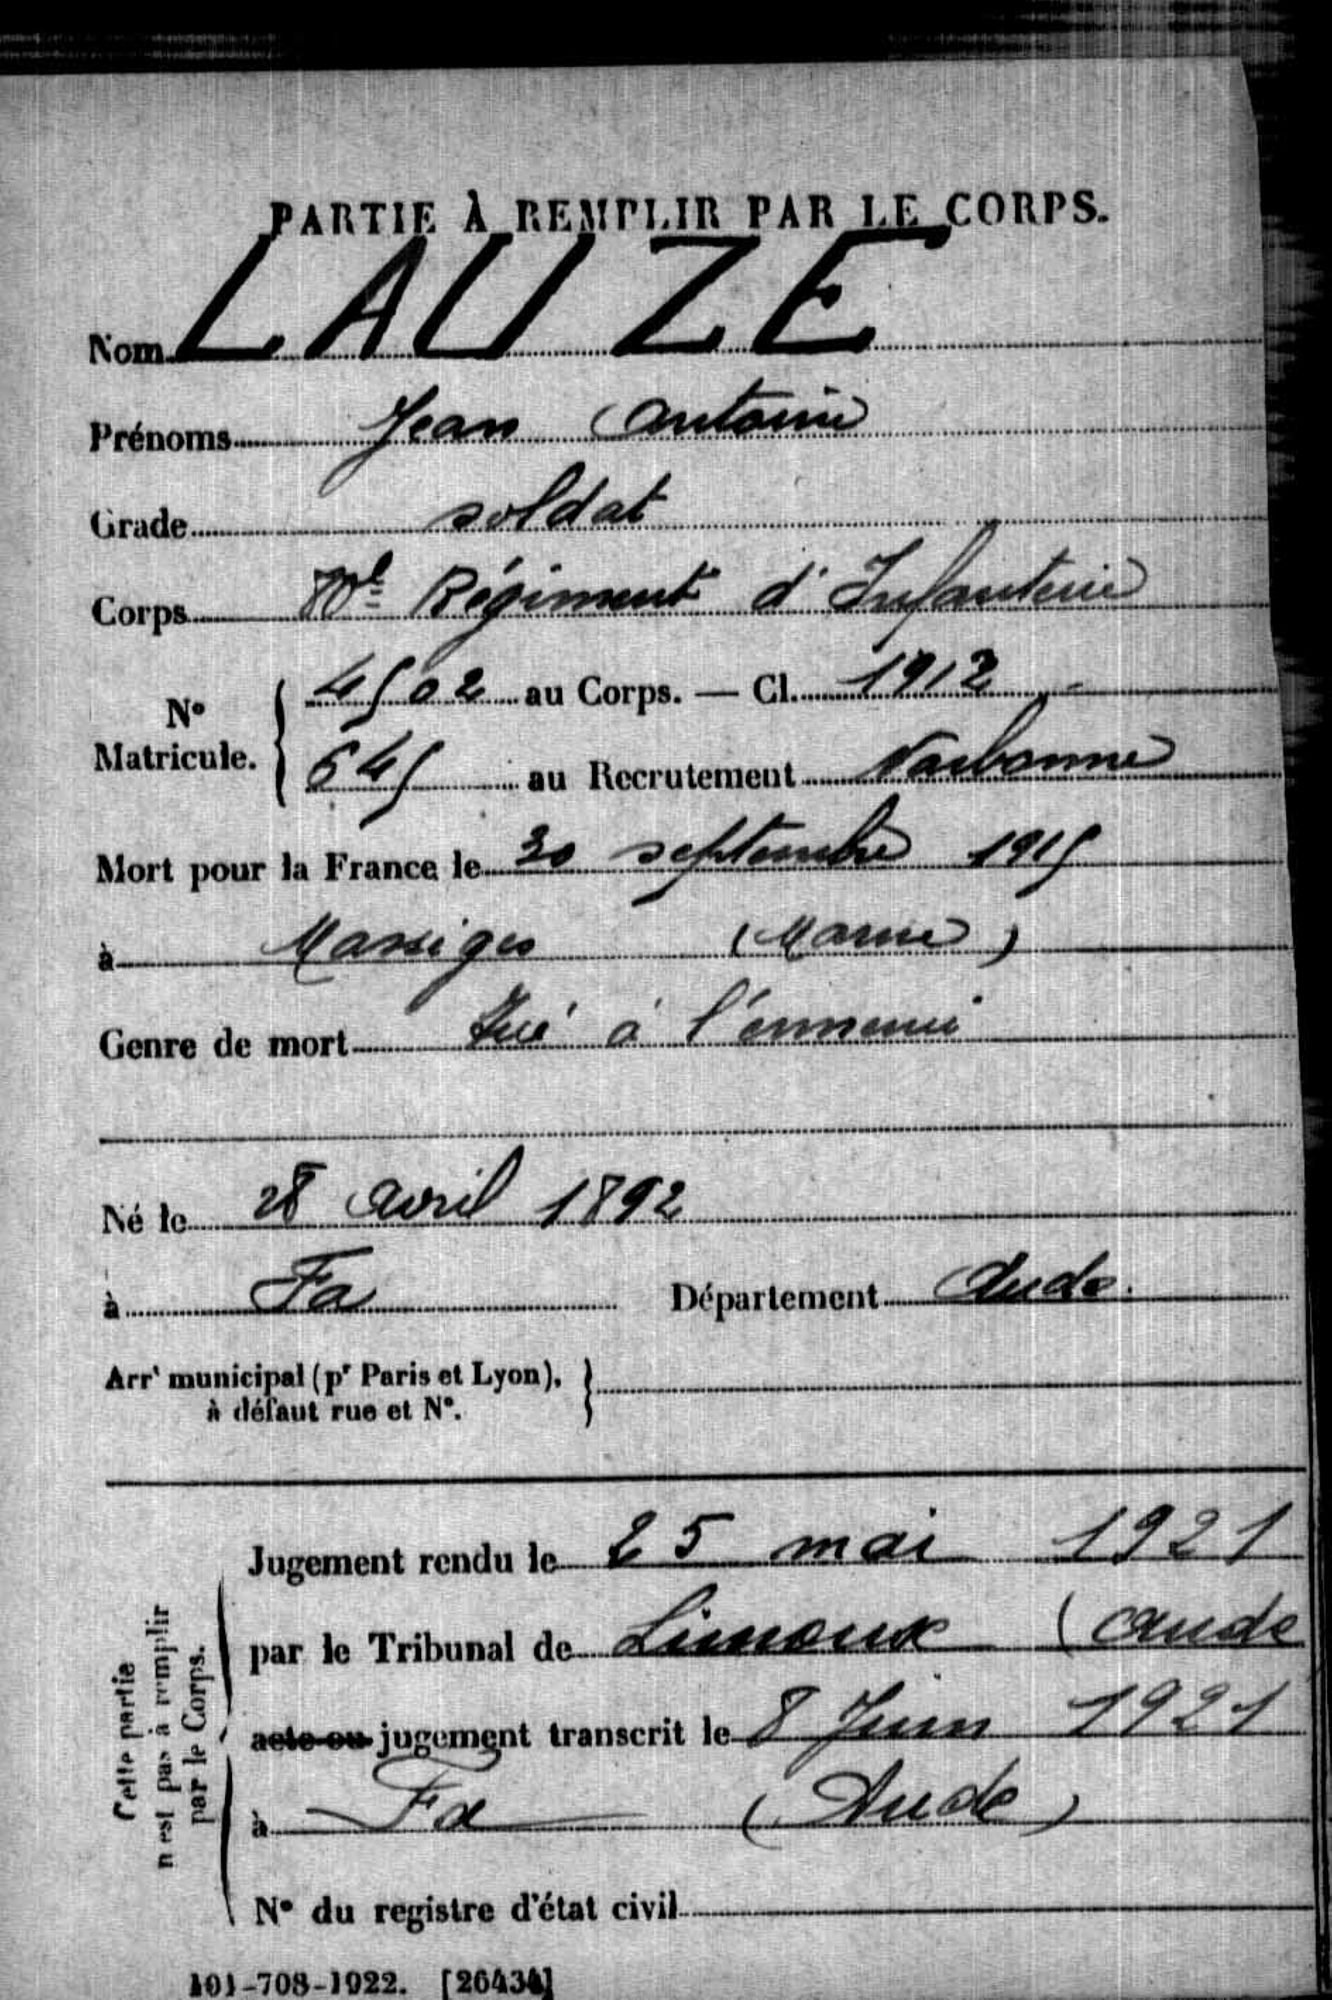 PARTIE À REMPLIR PAR LE CORPS.
Nom LAUZE
Prénoms Jean Antoine
Grade soldat
Corps Régiment d'Infanterie
N° Matricule. 4502 au Corps. — Cl. 1912
645 au Recrutement Narbonne
Mort pour la France le 30 septembre 1915
à Massiges (Marne)
Genre de mort tué à l'ennemi
Né le 28 avril 1892
à Fa Département Aude.
Arrt municipal (pr Paris et Lyon),
à défaut rue et N°.
Cette partie
n'est pas à remplir
par le Corps.
Jugement rendu le 25 mai 1921
par le Tribunal de Limoux (Aude
acte ou jugement transcrit le 8 Juin 1921
à Fa (Aude)
N° du registre d'état civil
101-708-1922. [26434]